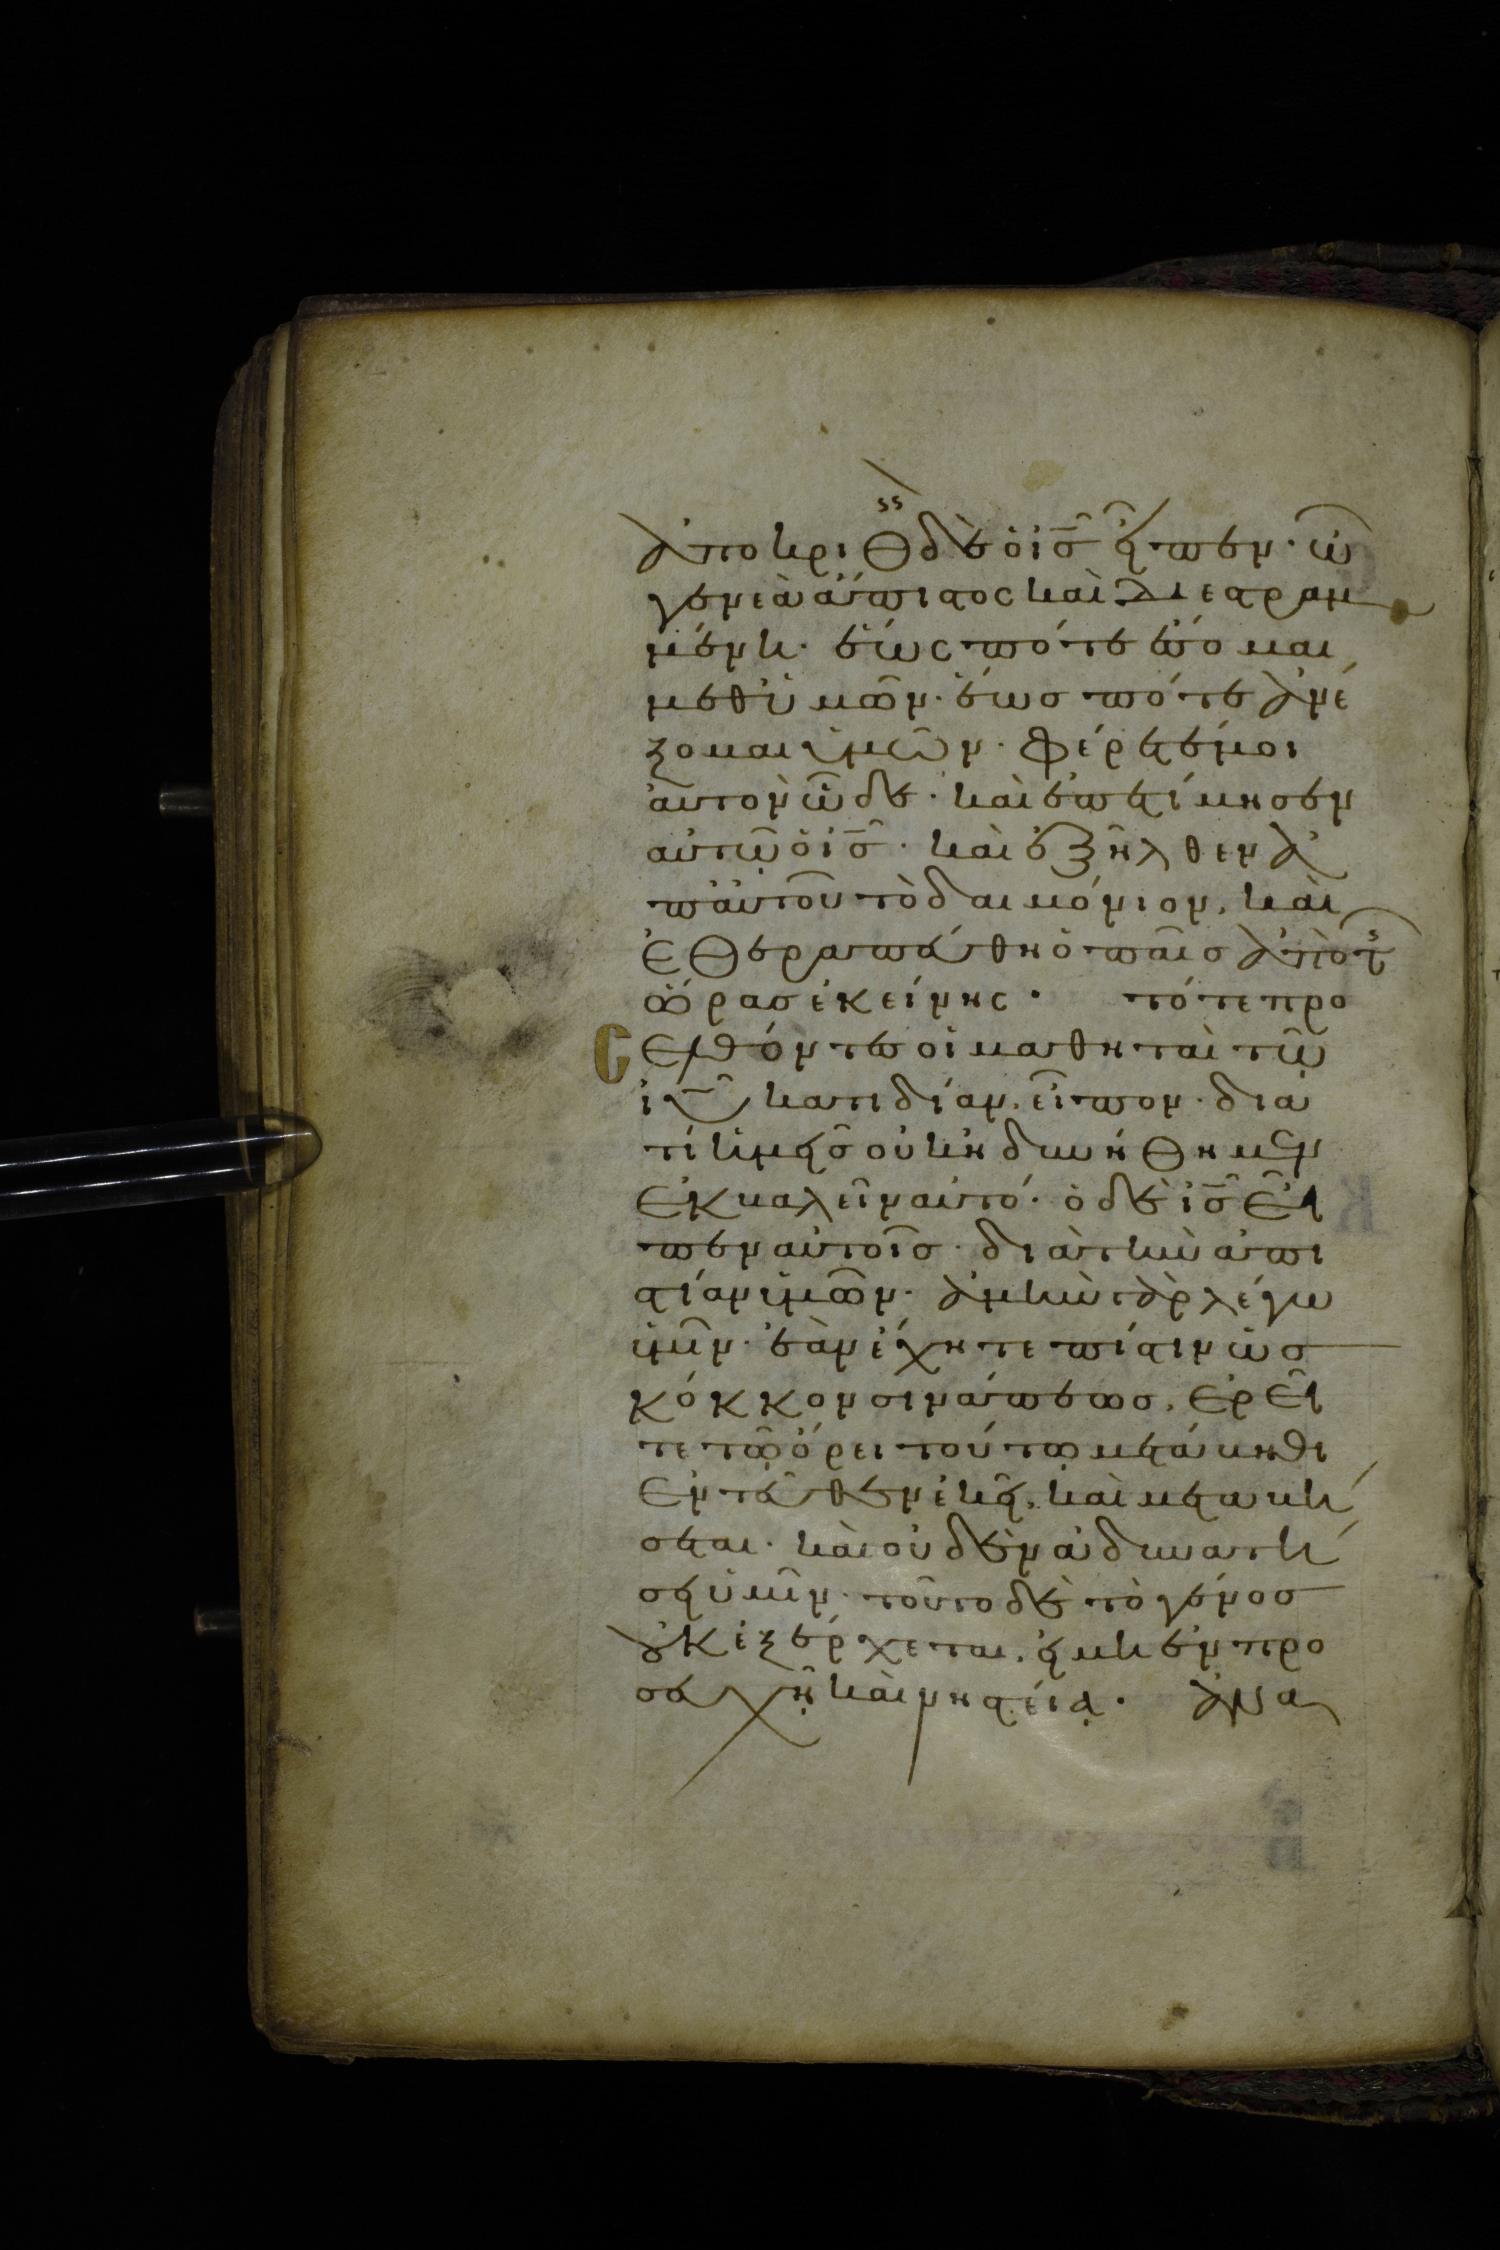 ἀποκριθεὶς δὲ ὁ ι̅ς̅ εἶπεν· ὦ
γενεὰ ἄπιστος καὶ διεστραμ
μένη· ἕως πότε ἔσομαι
μεθ' ὑμῶν· ἕως πότε ἀνέ
ξομαι ὑμῶν· φέρετέ μοι
αὐτὸν ὧδε· καὶ ἐπετίμησεν
αὐτῷ ὁ ι̅ς̅· καὶ ἐξῆλθεν ἀ
π' αὐτοῦ τὸ δαιμόνιον, καὶ
ἐθεραπεύθη ὁ παῖς ἀπὸ τῆς
ὥρας ἐκείνης· τότε προ
Ϲελθόντες οἱ μαθηταὶ τῷ
ι̅υ̅ κατιδίαν, εἶπον· διὰ
τί ἡμεῖς οὐκ ἠδυνήθημεν
ἐκβαλεῖν αὐτό· ὁ δὲ ι̅ς̅ εἶ
πεν αὐτοῖς· διὰ τὴν ἀπι
στίαν ὑμῶν· ἀμὴν γὰρ λέγω
ὑμῖν· ἐὰν ἔχητε πίστιν ὡς
κόκκον σινάπεως, ἐρεῖ
τε τῷ ὄρει τούτῳ μετάβηθι
ἐντεῦθεν ἐκεῖ, καὶ μεταβή
σεται· καὶ οὐδὲν ἀδυνατή
σει ὑμῖν· τοῦτο δὲ τὸ γένος
οὐκ ἐξέρχεται, εἰ μὴ ἐν προ
σευχῇ καὶ νηστείᾳ· ἀνα